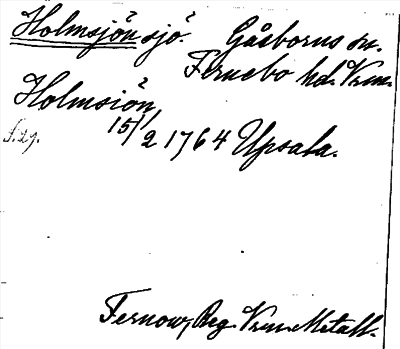 Holmsjön sjö. Gåsborns sn.
Fernebo hd. Vrm.
Holmsiön,
15/2 1764 Upsala.
Fernow, Reg. Vrm. Metall.